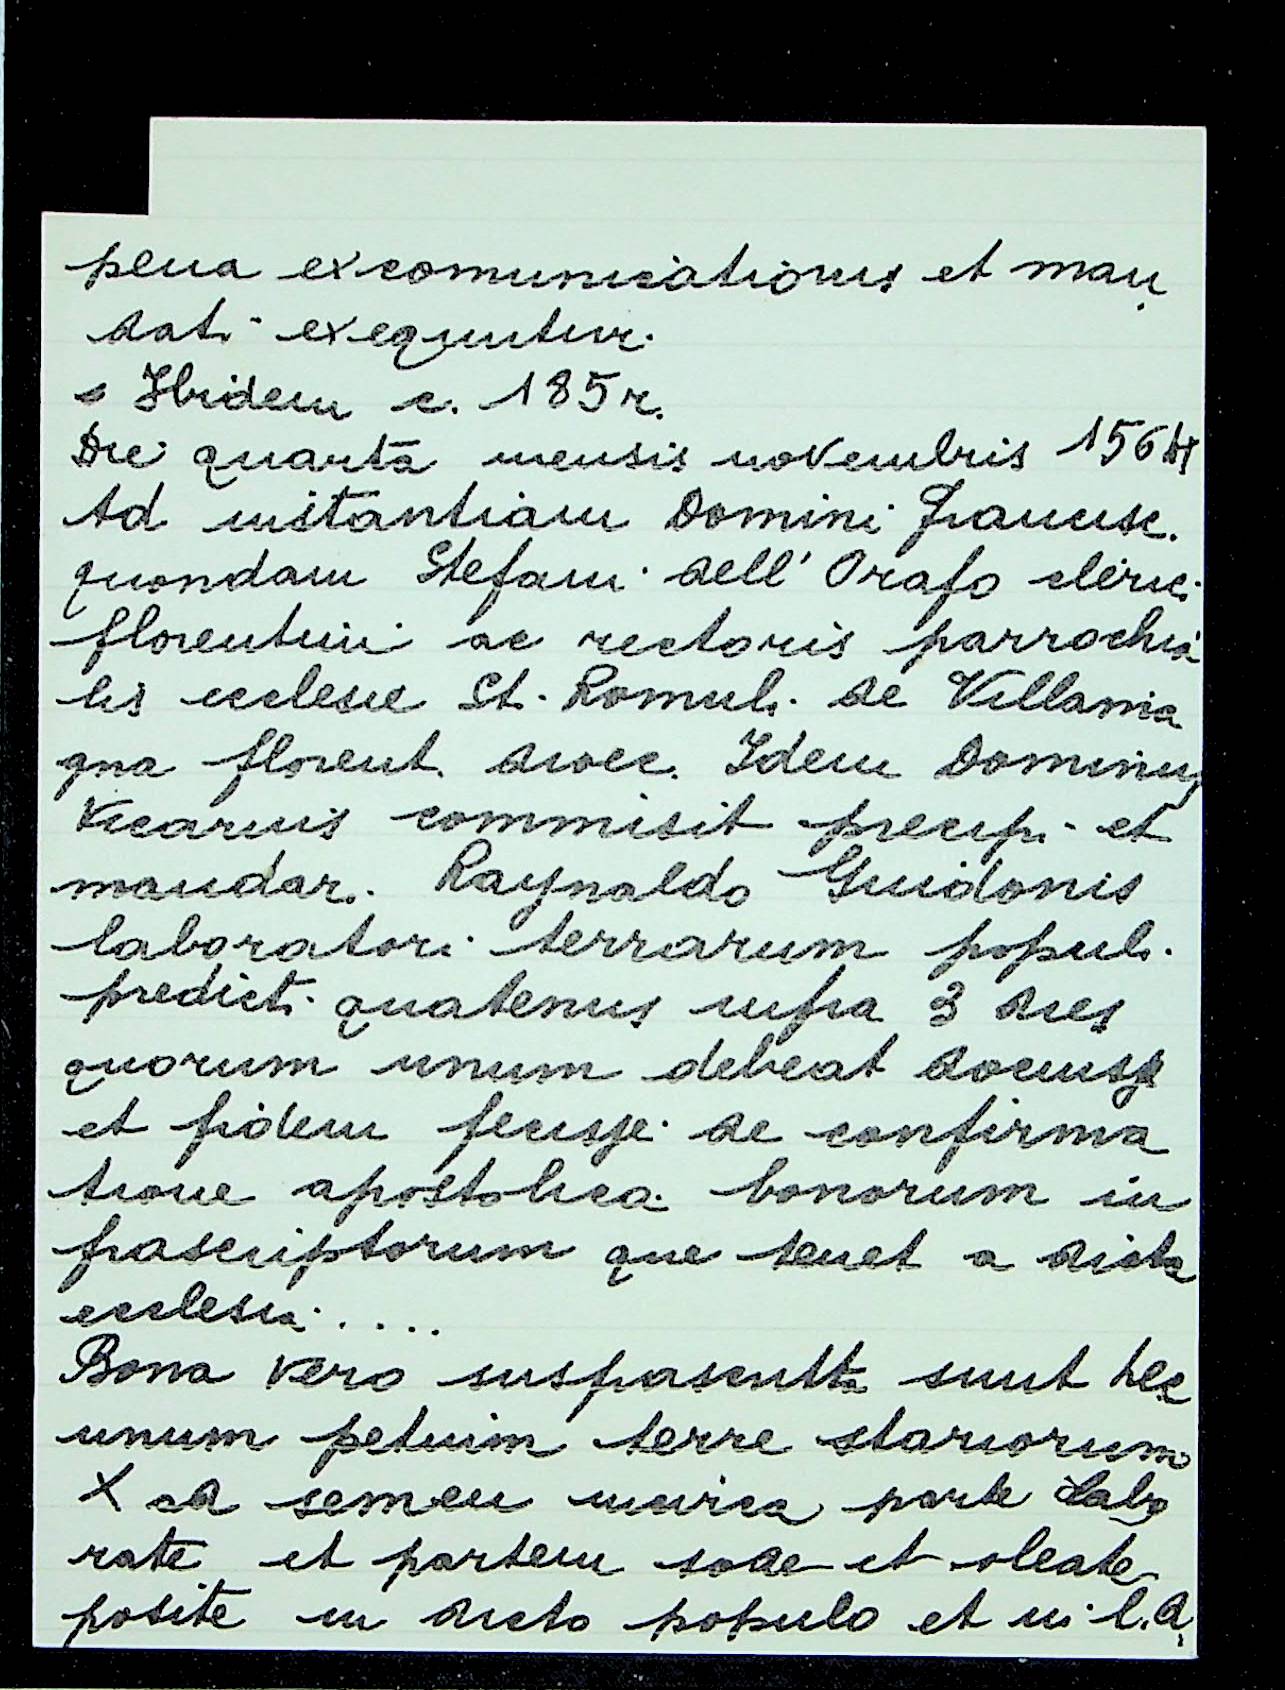 pena excomunicationis et man
dati exequntur.
Ibidem c. 185r.
Die quarta mensis novembris 1564
Ad instantiam Domini Francisc.
quondam Stefani dell' Orafo cleric.
florentini ac rectoris parrochia
lis ecclesie St. Romuli de Villama
gna florent. dioec. Idem Dominus
Vicarius commisit precipi et
mandari Raynaldo Guidonis
laboratori terrarum populi
predicti quatenus infra 3 dies
quorum unum debeat docuisse
et fidem fecisse de confirma
tione apostolica bonorum in
frascriptorum que tenet a dicta
ecclesia ....
Bona vero suprascritta sunt hec
unum petium terre starorum
X ad semen in parte labo
rate et partem sode et oleate
posite in dicto populo et in l. d.